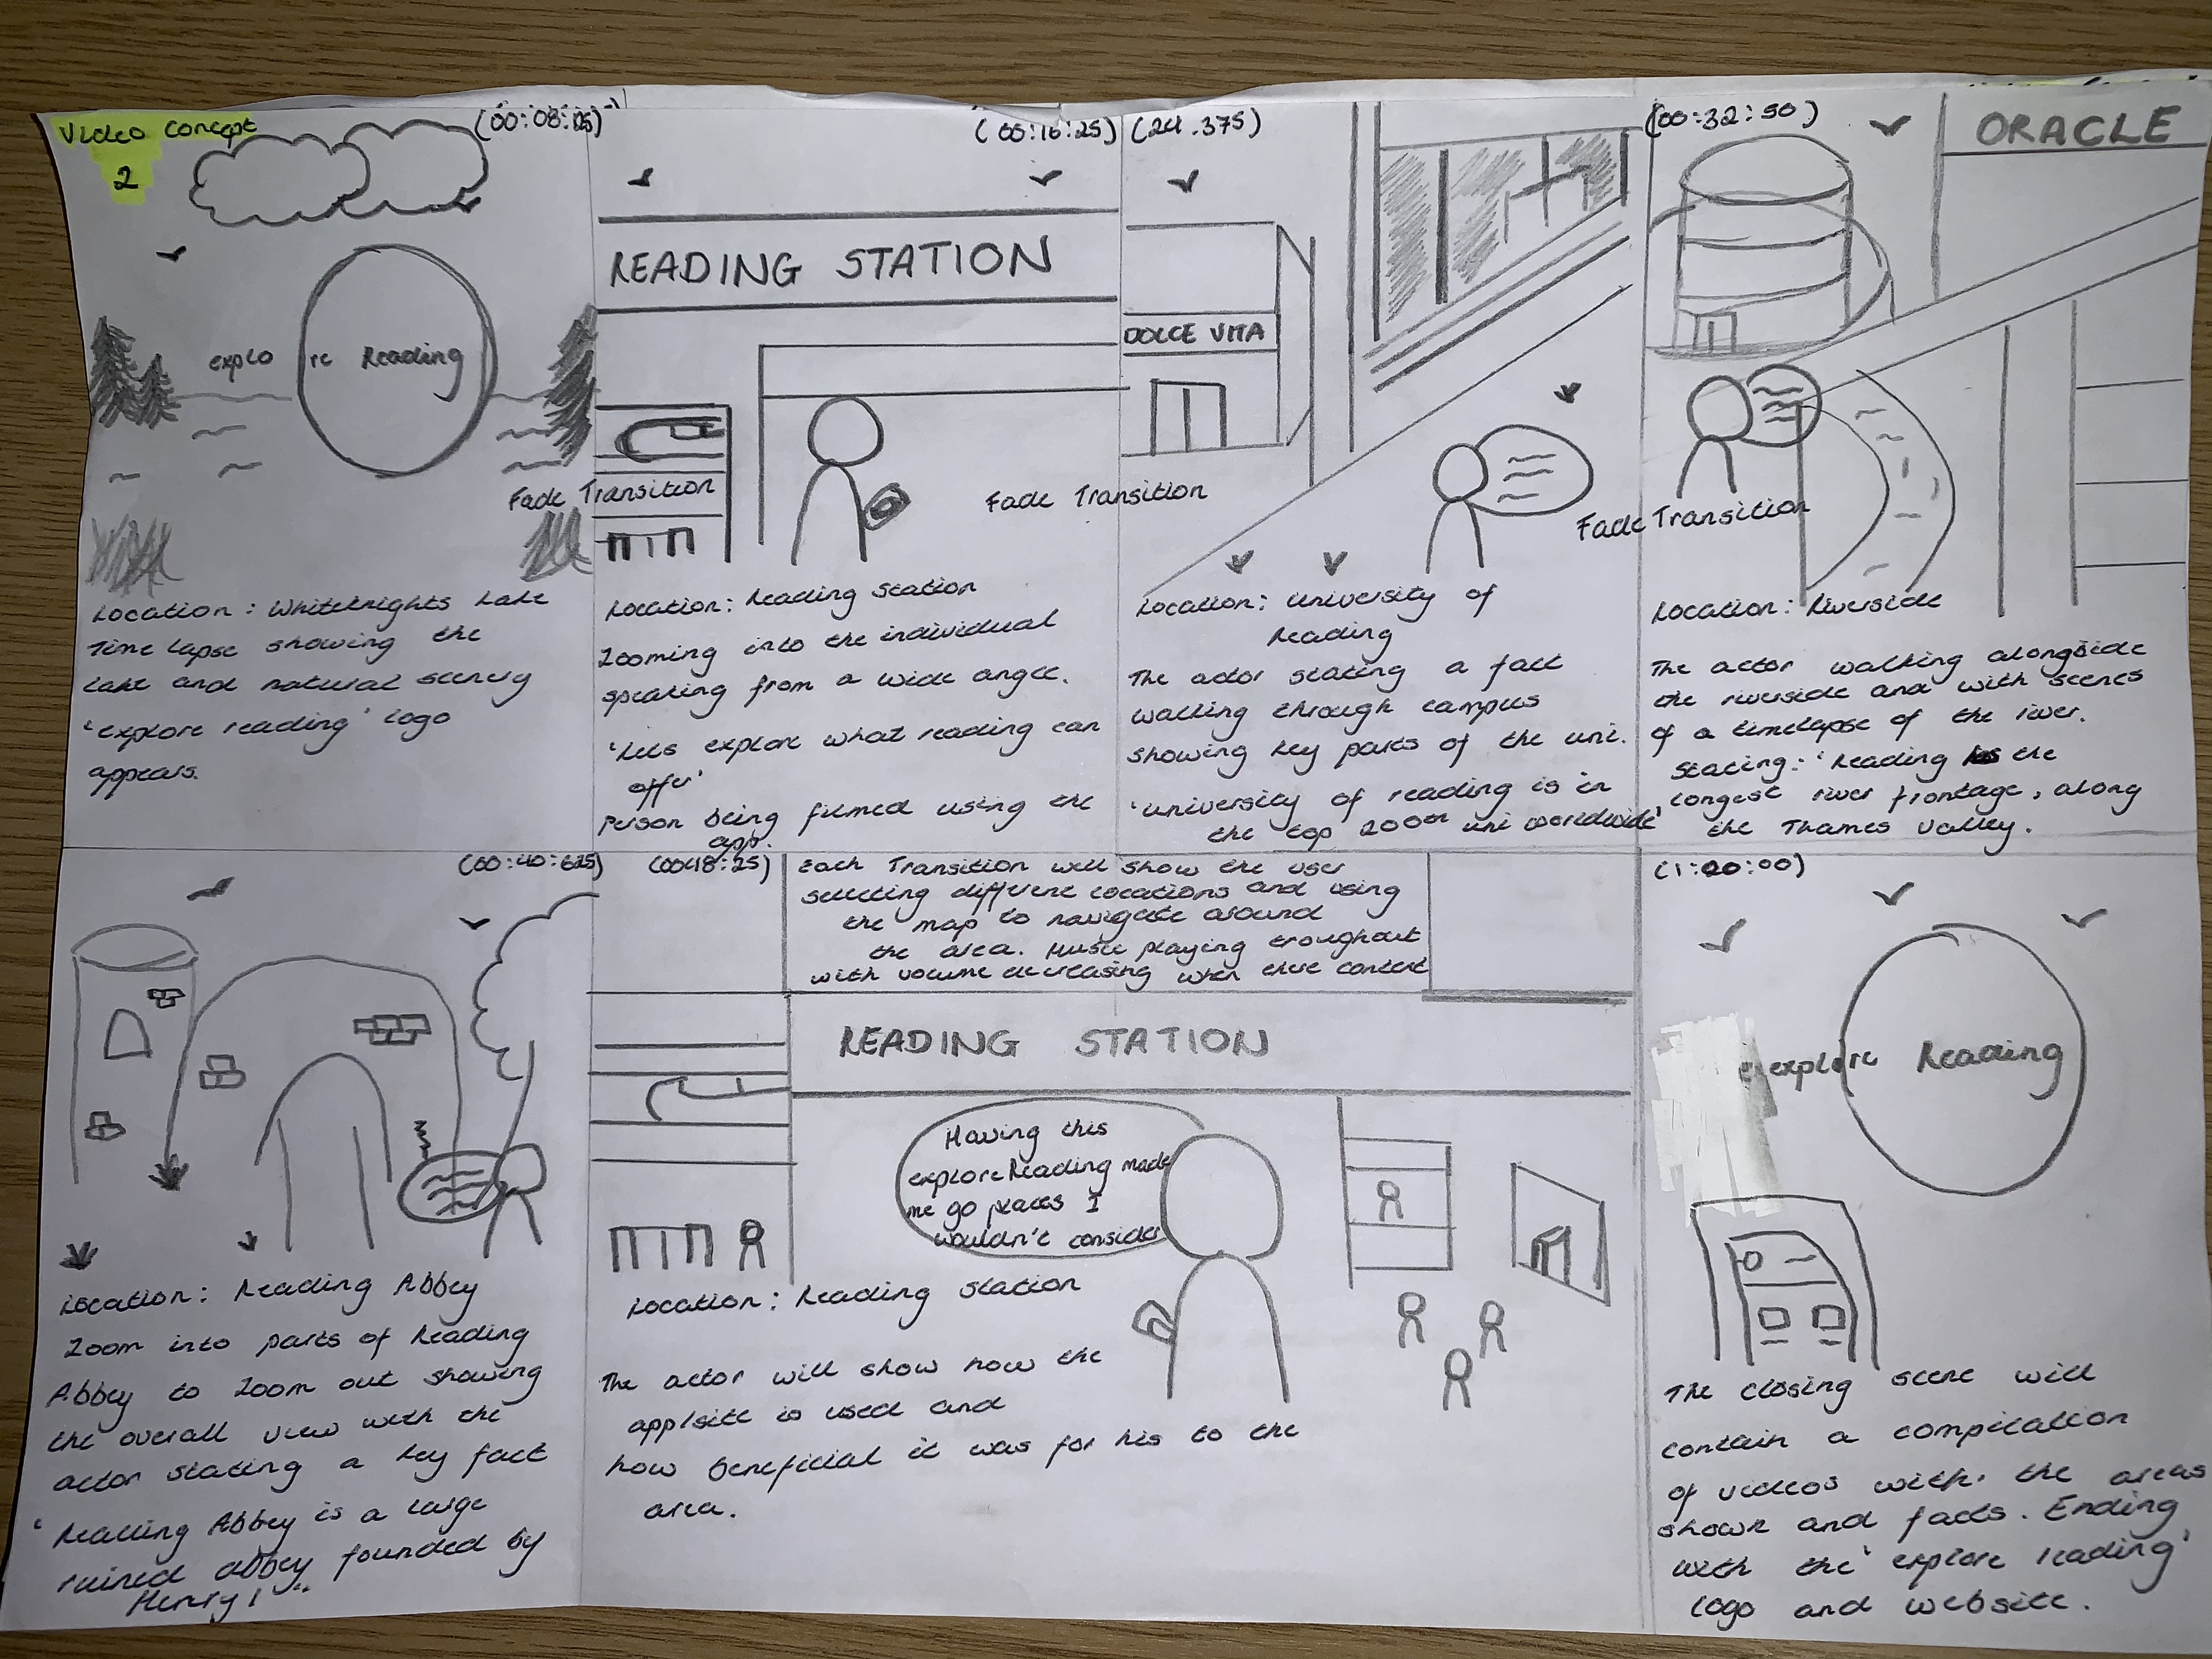 Video Concept
2
(00:08:125)
explore Reading
Fade Transition
Location: Whiteknights Lake
Time lapse showing the
lake and natural scenery
'explore reading' logo
appears.
(00:16:25)
READING STATION
Fade Transition
Location: Reading Station
Zooming into the individual
speaking from a wide angle.
'Lets explore what reading can
offer'
Person being filmed using the
app.
(24.375)
DOLCE VITA
Fade Transition
Location: University of
Reading
The actor stating a fact
walking through campus
showing key parts of the uni.
'University of reading is in
the top 200 uni worldwide'
(00:32:50)
ORACLE
Location: Riverside
The actor walking alongside
the riverside and with scenes
of a timelapse of the river.
Stating: 'Reading has the
longest river frontage, along
the Thames Valley.
(00:40:625)
Location: Reading Abbey
Zoom into parts of Reading
Abbey to zoom out showing
the overall view with the
actor stating a key fact
'Reading Abbey is a large
ruined abbey founded by
Henry I''
(00:48:25)
Each Transition will show the user
selecting different locations and using
the map to navigate around
the area. Music playing troughout
with volume decreasing when there content
READING STATION
Having this
explore Reading made
me go places I
wouldn't consider
Location: Reading station
The actor will show how the
app/site is used and
how beneficial it was for his to the
area.
(1:20:00)
explore Reading
The closing scene will
contain a compilation
of videos with the areas
shown and facts. Ending
with the 'explore reading'
logo and website.